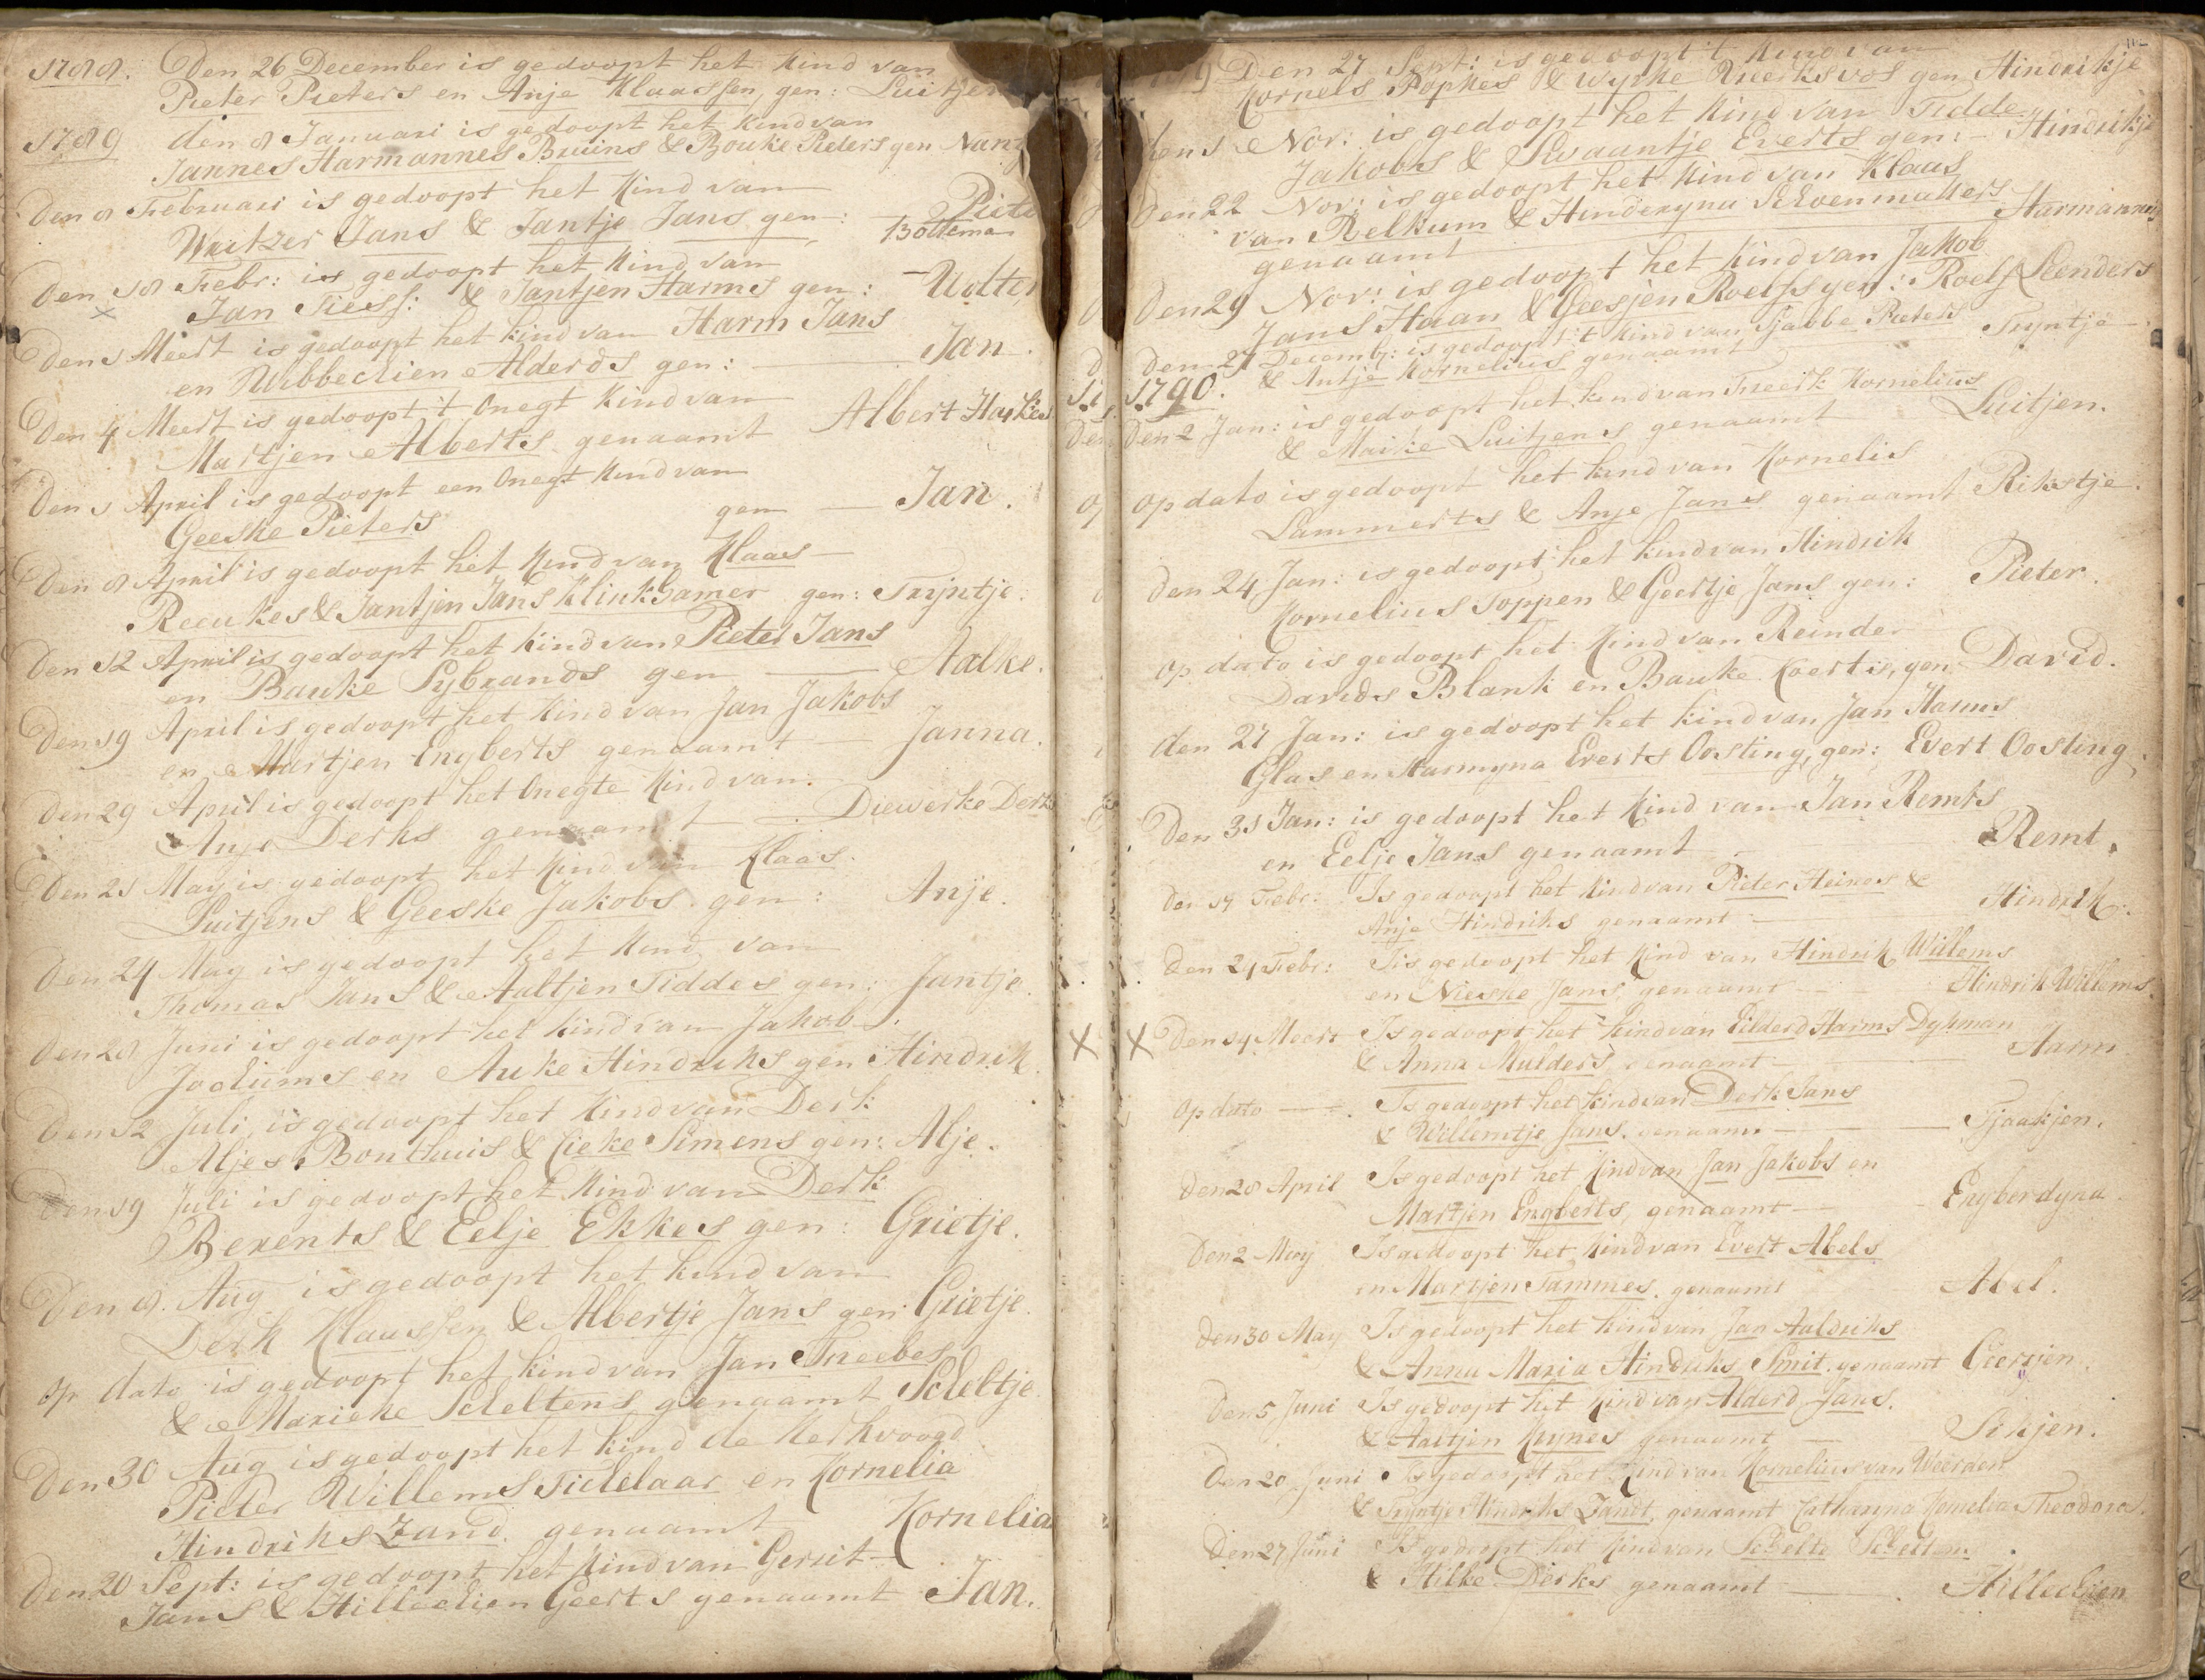 1788. Den 26 December is gedoopt het Kind van
Pieter Pieters en Anje Klaassen, gen: Luitjen
1789 den 8 Januari is gedoopt het Kind van
Jannes Harmannes Bruins & Bouke Pieters gen
Den 8 Februari is gedoopt het Kind van
Writzer Jans & Jantje Jans gen: Piete
Bolleman
Den 18 Febr: is gedoopt het Kind van
Jan Tiess: & Jantjen Harms gen: Wolter
Den 1 Meert is gedoopt het Kind van Harm Jans
en Wibbechien Alderds gen: Jan.
Den 4 Meert is gedoopt 't Onegt Kind van
Martjen Alberts genaamt Albert
Den 1 April is gedoopt een Onegt Kind van
Geeske Pieters gen Jan.
Den 8 April is gedoopt het Kind van Klaas
Reeukes & Jantjen Jans Klinkhamer gen: Trijntje.
Den 12 April is gedoopt het Kind van Pieter Jans
en Bauke Sybrands gen Aalke.
Den 19 April is gedoopt het Kind van Jan Jakobs
en Martjen Engberts genaamt Janna.
Den 29 April is gedoopt het Onegte Kind van
Anje Derks genaamt Diewerke Derks
Den 21 May is gedoopt het Kind van Klaas
Luitjens & Geeske Jakobs gen: Anje.
Den 24 May is gedoopt het Kind van
Thomas Jans & Aaltjen Tiddes gen: Jantje.
Den 28 Juni is gedoopt het Kind van Jakob
Jochums en Auke Hindriks gen Hindrik.
Den 12 Juli is gedoopt het Kind van Derk
Aljes Bonthuis & Cieke Simens gen: Alje.
Den 19 Juli is gedoopt het Kind van Derk
Berents & Eelje Ekkes gen: Grietje.
Den 9. Aug is gedoopt het Kind van
Derk Klaassen & Albertje Jans gen: Grietje.
op dato is gedoopt het Kind van Jan Freebes
& Marieke Scheltens genaamt Scheltje.
Den 30 Aug is gedoopt het kind de Kerkvoogd
Pieter Willems Tichelaar en Kornelia
Hindriks Zand. genaamt Kornelia
Den 20 Sept: is gedoopt het Kind van Gerrit
Jans & Hillechien Geerts genaamt Jan.
Den 27 Sept: is gedoopt 't Kind van
Kornels Popkes & Wypke Freerks vos gen Hindrikje
den 1 Nov: is gedoopt het Kind van Tidde
Jakobs & Swaantje Everts gen: Hindrikje
Den 22 Nov: is gedoopt het Kind van Klaas
van Relkum & Hinderyna Schoenmakers
genaamt Harmannus
Den 29 Nov: is gedoopt het Kind van Jakob
Jans Haan & Geesjen Roelfs gen: Roelf Leenders
Den 27 Decemb: is gedoopt 't Kind van Sjabbe Pieters
& Antje Kornelius genaamt Tryntje
1790.
Den 2 Jan: is gedoopt het kind van Freerk Kornelius
& Maike Luitjens genaamt Luitjen.
op dato is gedoopt het kind van Kornelis
Lammerts & Anje Jans genaamt Rikstje.
Den 24 Jan: is gedoopt het kind van Hindrik
Kornelius Toppen & Geertje Jans gen: Pieter.
op dato is gedoopt het Kind van Reinder
Davids Blank en Bauke Koerts, gen David.
den 27 Jan: is gedoopt het kind van Jan Harms
Glas en Harmyna Everts Oosting, gen: Evert Oosting.
Den 31 Jan: is gedoopt het Kind van Jan Remts
en Eelje Jans genaamt Remt.
Den 14 Febr: Is gedoopt het Kind van Pieter Heines &
Anje Hindriks genaamt Hindrik.
Den 24 Febr: Is gedoopt het Kind van Hindrik Willems
en Nieske Jans, genaamt Hindrik Willems.
Den 14 Meert Is gedoopt het kind van Eilderd Harms Dykman
& Anna Mulders, genaamt Harm
Op dato Is gedoopt het kind van Derk Jans
& Willemtje Jans. genaamt Tjaakjen.
Den 28 April Is gedoopt het Kind van Jan Jakobs en
Martjen Engberts, genaamt Engberdyna.
Den 2 May Is gedoopt het Kind van Evert Abels
en Martjen Tammes. genaamt Abel.
Den 30 May Is gedoopt het Kind van Jan Aaldriks
& Anna Maria Hindriks Smit. genaamt
Den 5 Juni Is gedoopt het Kind van Alderd Jans.
& Aaltjen genaamt Sikjen.
Den 20 Juni Is gedoopt het Kind van Kornelius van Weerden
& Tryntje Hindriks Zandt, genaamt Catharina Kornelia Theodora.
Den 27 Juni Is gedoopt het Kind van Schelte Scheltens
& Hilke Derks genaamt Hillechien